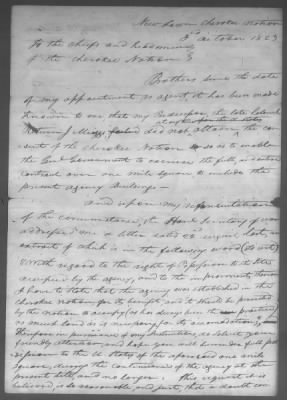 New Town Cherokee Nation
3d October 1823
To the chiefs and headmen
of the Cherokee Nation
Brothers since the date
of my appointment as agent, it has been made
known to me that my Predecessor, the late Colonel
Return J Meigs, did not attain, the con
sent of the Cherokee Nation so as to enable
the Genl Government to exercise the full, or entire
controul over one mile square to include the
present agency buildings —
and upon my representation
of the circumstance, the Secretary of war
addressed me a letter dated August last, an
extract of which is in the following words (to wit)
With regard to the rights of possession to the site
occupied by the agency, and to the improvements thereon
I have to state that the agency was established in the
Cherokee nation for its benefit and it should be permitted
by the nation to occupy (as has always been the practice)
as much land as is necessary for its accommodation,
therefore in pursuance of my instructions, solicit your
friendly attention and hope you will surrender full pos
session to the U States of the aforesaid one mile
square, during the continuance of the agency at the
present site, and no longer. this request it is
believed, is so reasonable and just, that a doubt can